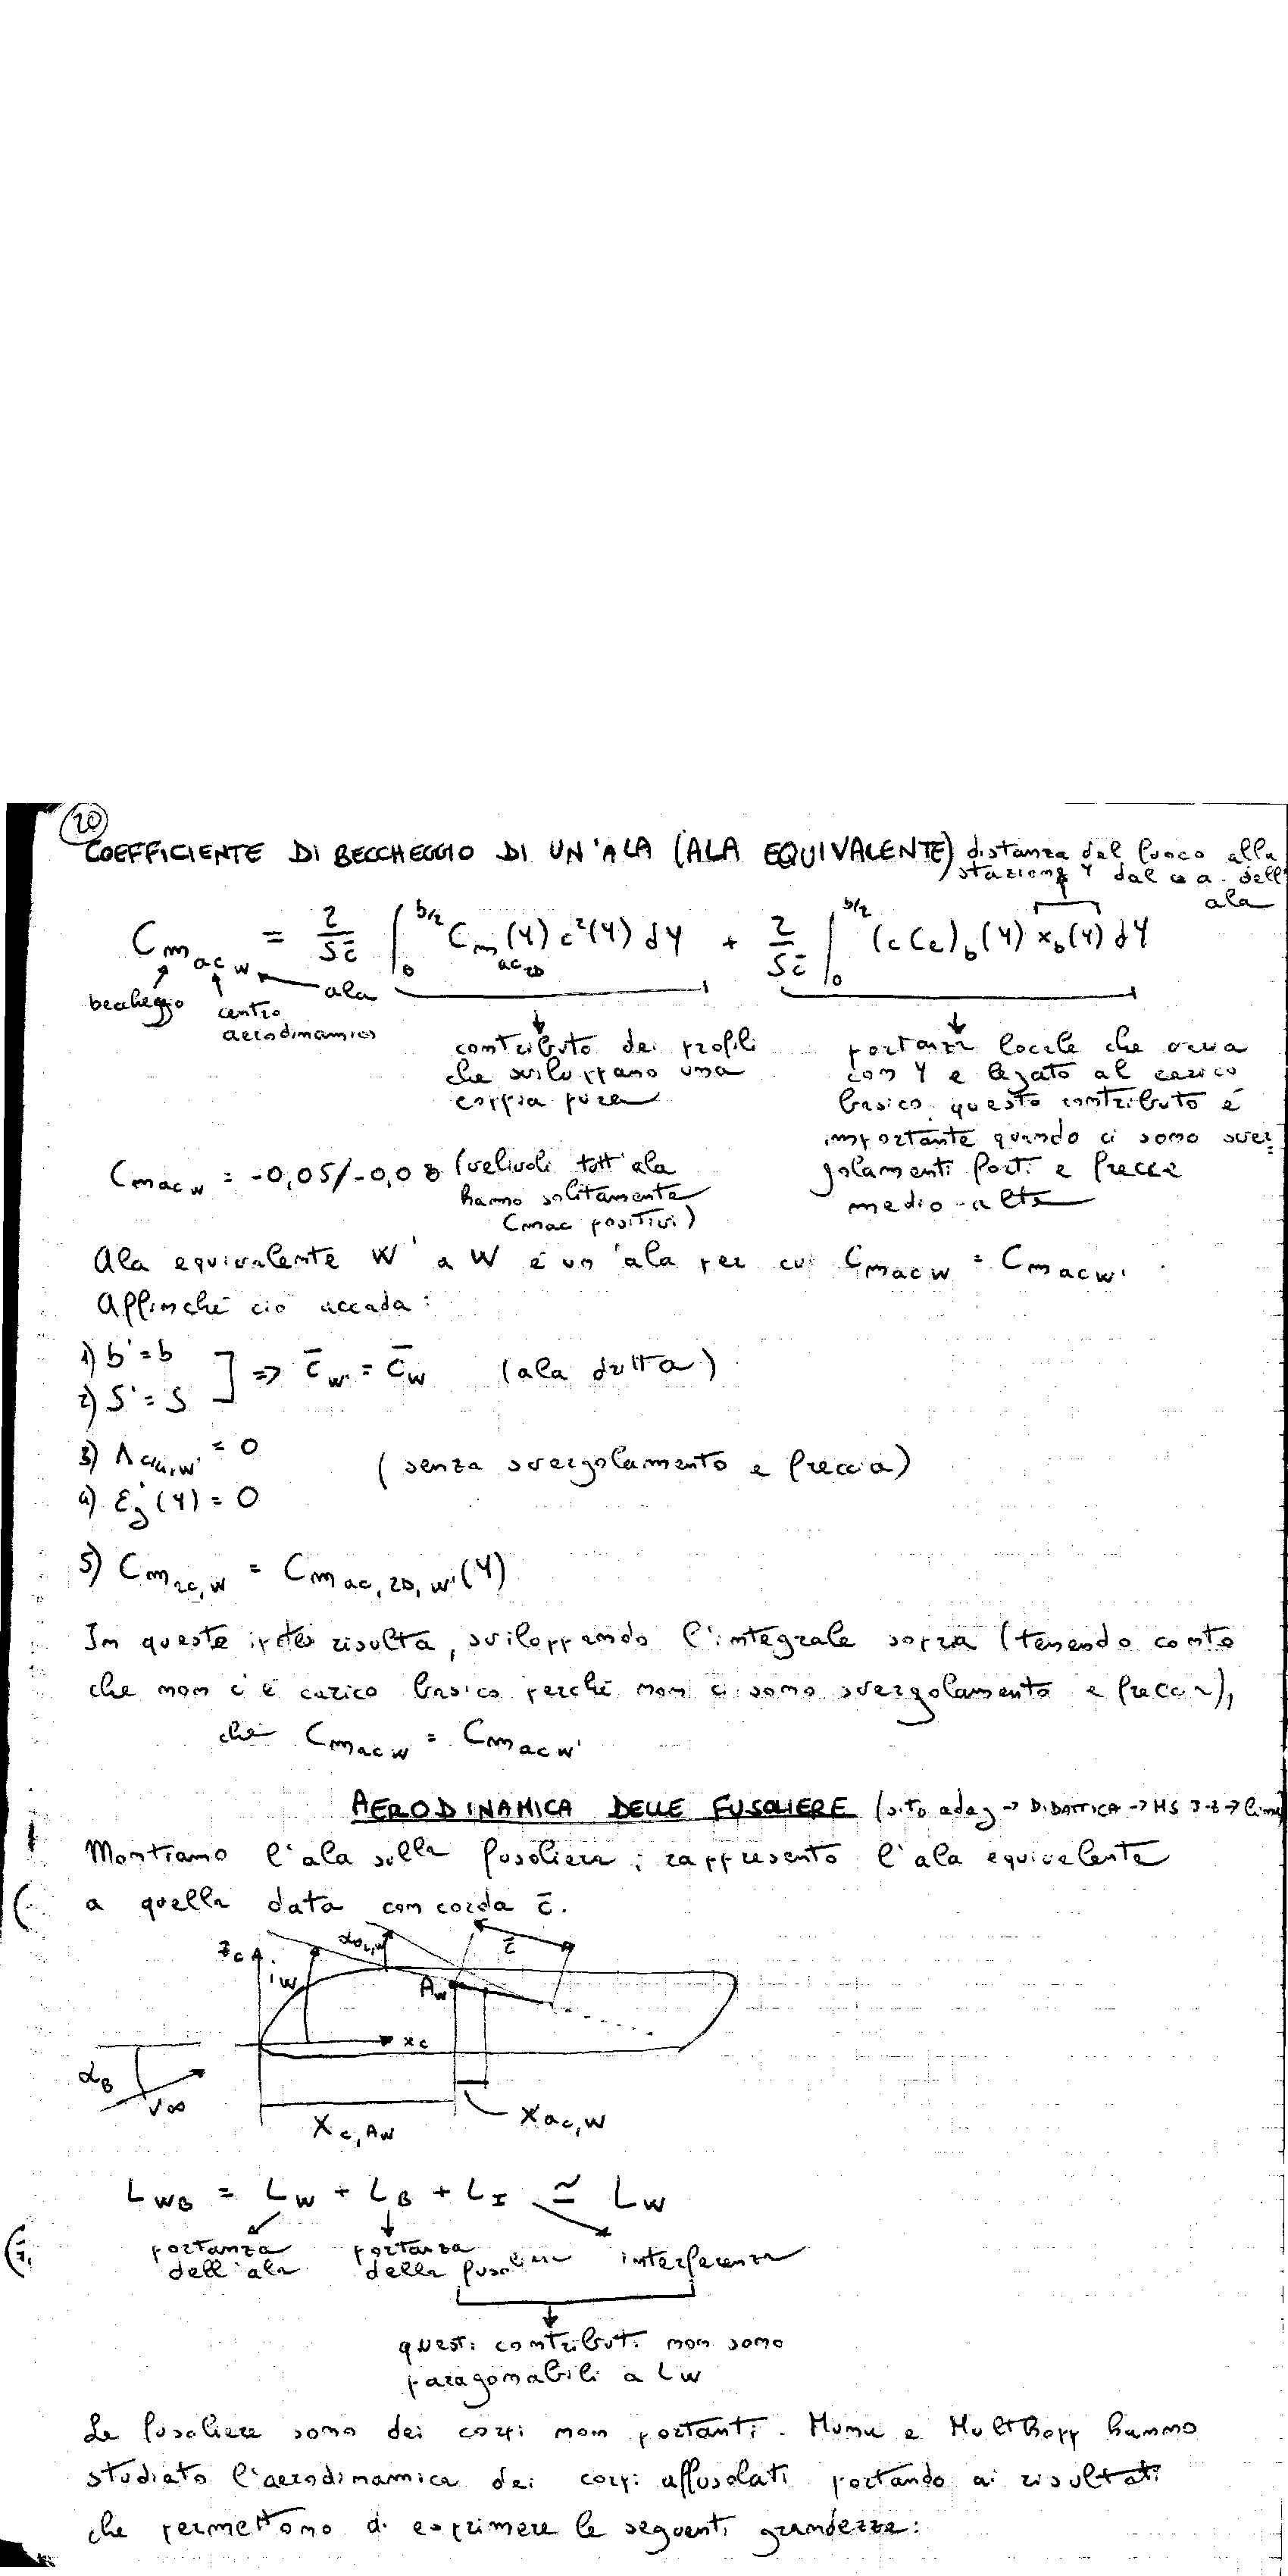 20
COEFFICIENTE DI BECCHEGGIO DI UN'ALA (ALA EQUIVALENTE) distanza del fuoco alla
stazione Y dal c.a. dell'
ala
C_{m_{ac_W}} = 2/(S c̄) ∫_0^{b/2} C_{m_{ac_{2D}}}(Y) c²(Y) dY + 2/(S c̄) ∫_0^{b/2} (c C_e)_b (Y) x_b(Y) dY
beccheggio centro aerodinamico ala
contributo dei profili
che sviluppano una
coppia pura
portanza locale che varia
con Y e legato al carico
basico, questo contributo è
importante quando ci sono sver-
golamenti forti e frecce
medio-alte
C_{m_{ac_W}} = -0,05/-0,08 (velivoli tutt'ala
hanno solitamente
C_{mac} positivi)
Ala equivalente W' a W è un'ala per cui C_{m_{ac W}} = C_{m_{ac W'}}.
Affinché ciò accada:
1) b' = b
2) S' = S ] => c̄_{W'} = c̄_W (ala dritta)
3) Λ_{c/4,W'} = 0
(senza svergolamento e freccia)
4) ε_g'(Y) = 0
5) C_{m_{ac,W}} = C_{m_{ac,2D,W'}}(Y)
In queste ipotesi risulta, sviluppando l'integrale sopra (tenendo conto
che non c'è carico basico perché non ci sono svergolamento e freccia),
che C_{m_{ac W}} = C_{m_{ac W'}}
AERODINAMICA DELLE FUSOLIERE (sito adag -> DIDATTICA -> MS
Montiamo l'ala sulla fusoliera; rappresento l'ala equivalente
a quella data con corda c̄.
z_c i_W α_{0L,W} c̄
A_W
x_c
α_B
V∞
X_{c,A_W} X_{ac,W}
L_{WB} = L_W + L_B + L_I ≃ L_W
portanza dell'ala
portanza della fusoliera
interferenza
questi contributi non sono
paragonabili a L_W
Le fusoliere sono dei corpi non portanti. Munk e Multhopp hanno
studiato l'aerodinamica dei corpi affusolati portando ai risultati
che permettono di esprimere le seguenti grandezze: